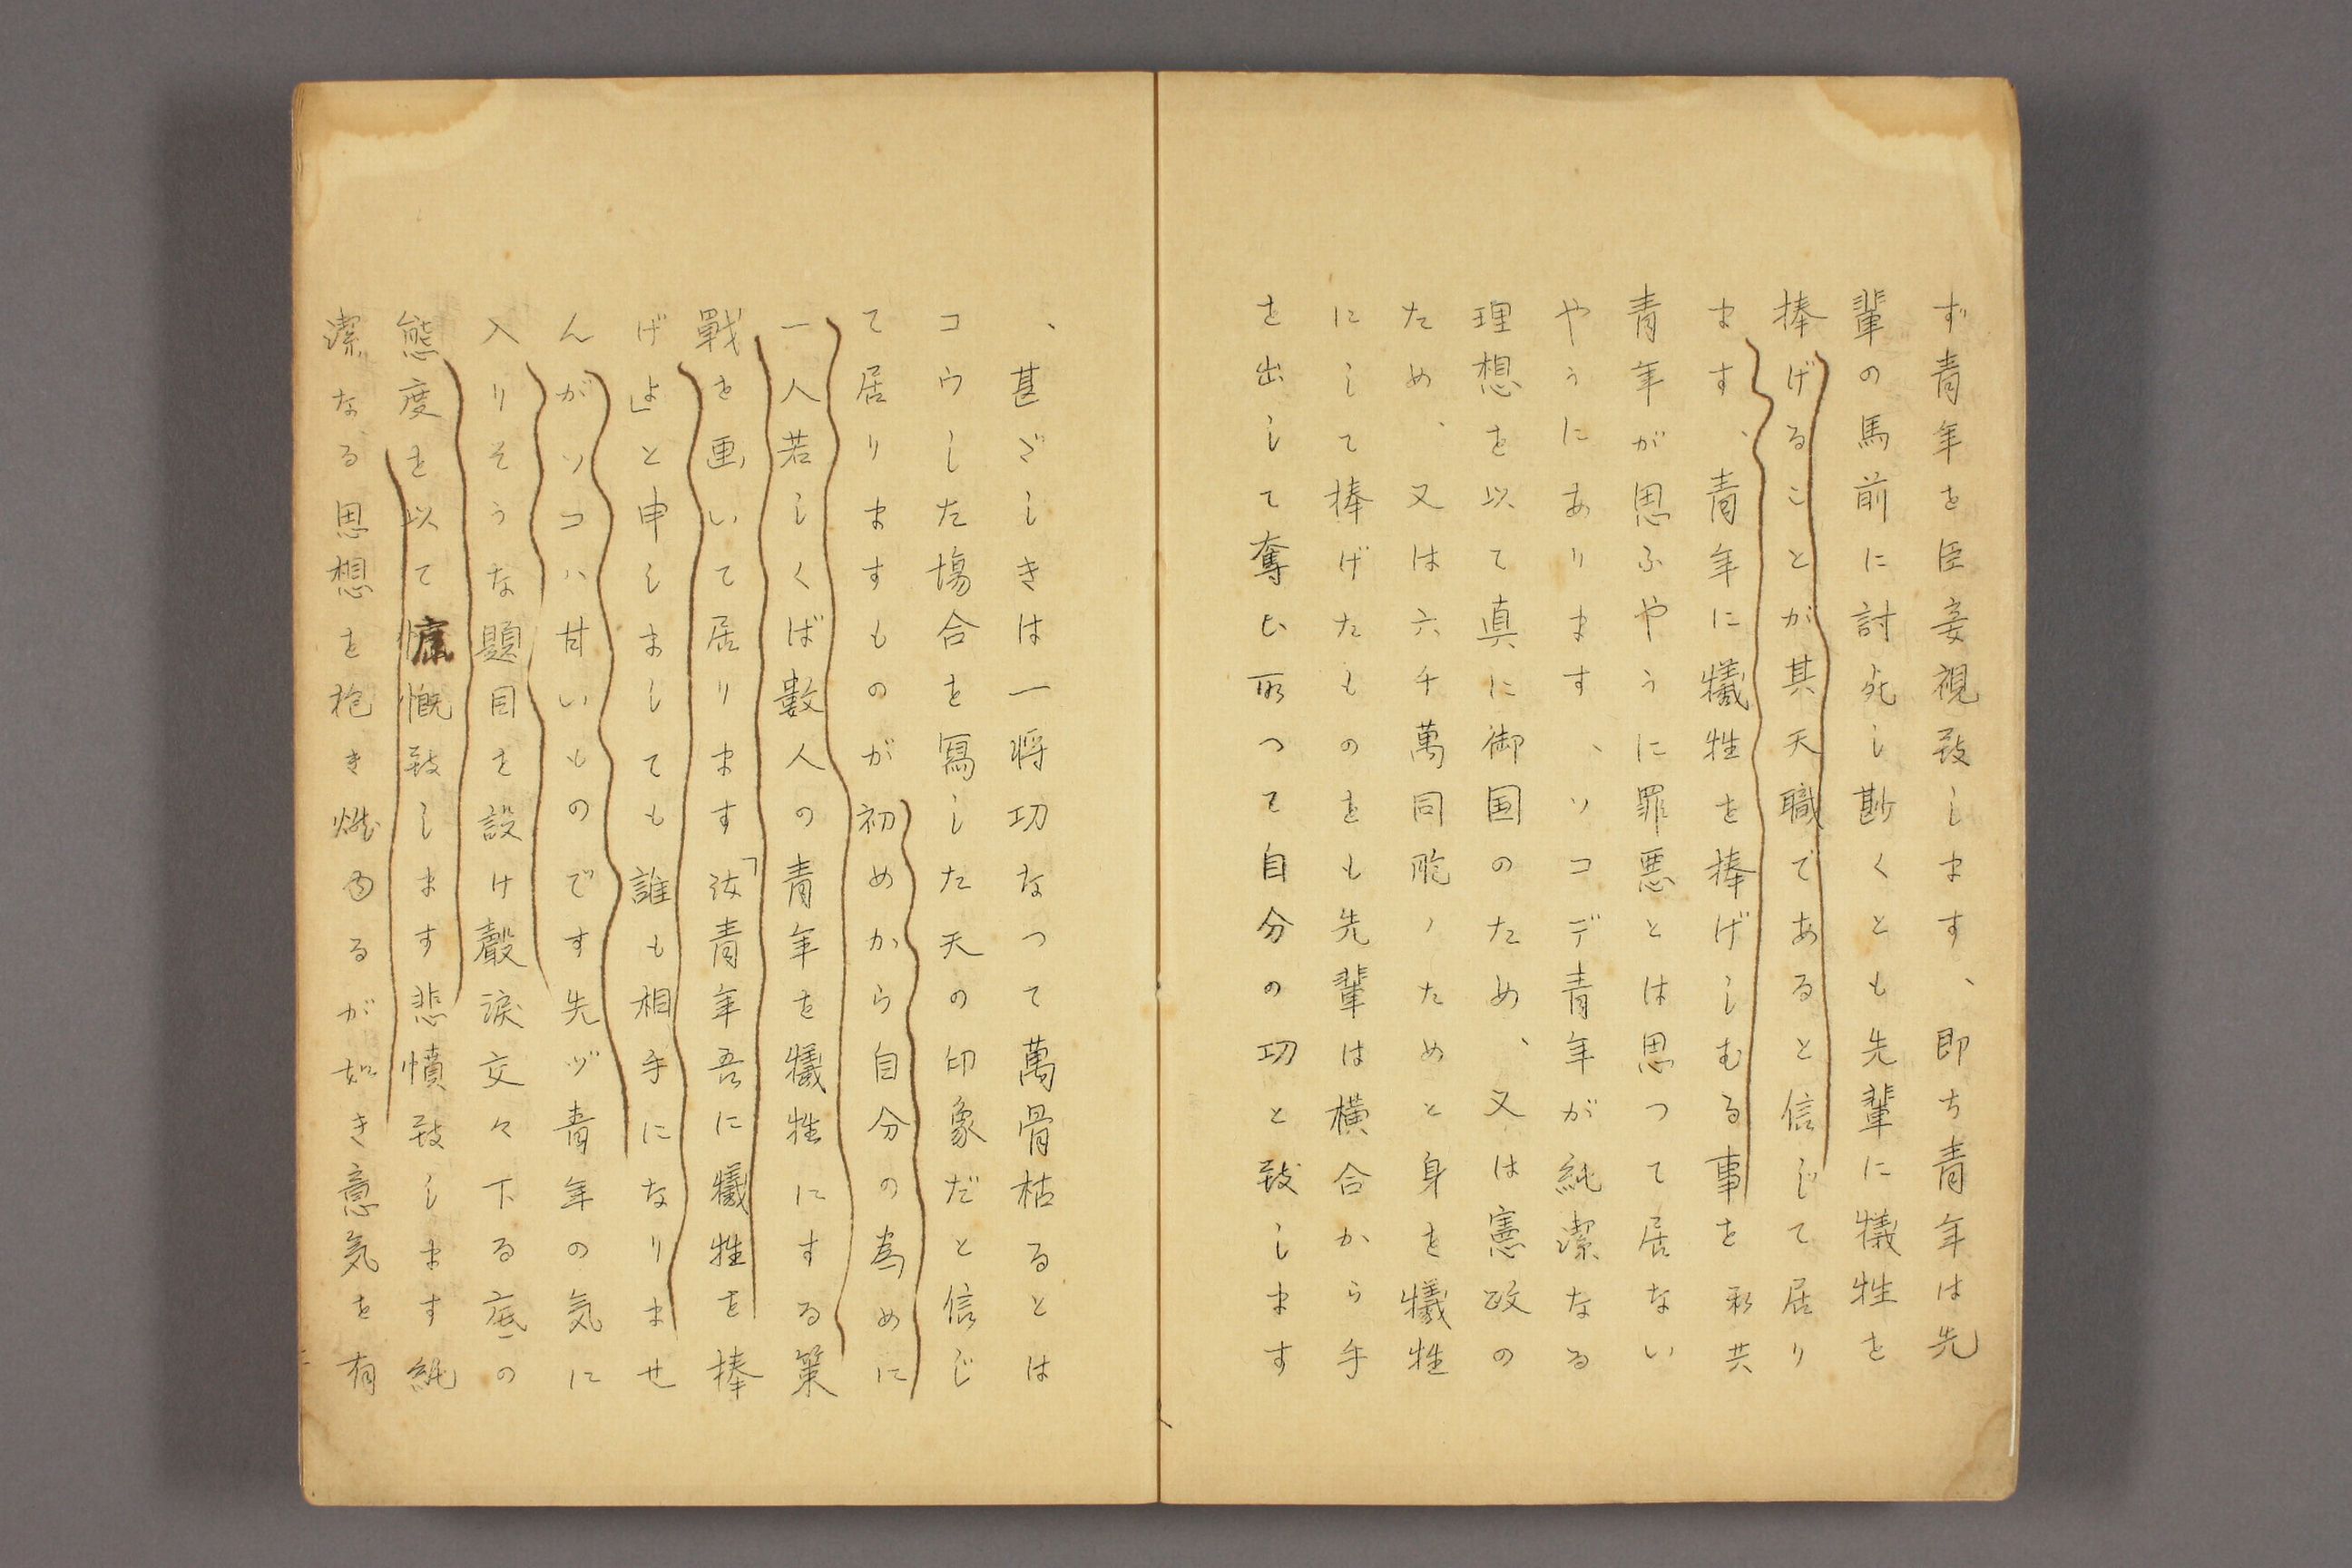 ず青年を臣妾視致します、即ち青年は先
輩の馬前に討死し尠くとも先輩に犠牲を
捧げることが其天職であると信じて居り
ます、青年に犠牲を捧げしむる事を私共
青年が思ふやうに罪悪とは思つて居ない
やうにあります、ソコデ青年が純潔なる
理想を以て真に御国のため、又は憲政の
ため、又は六千萬同胞ノためと身を犠牲
にして捧げたものをも先輩は横合から手
を出して奪ひ取つて自分の功と致します
、甚ざしきは一将功なつて萬骨枯るとは
コウした場合を寫した天の印象だと信じ
て居りますものが初めから自分の為めに
一人若しくば數人の青年を犠牲にする策
戰を画いて居ります「汝青年吾に犠牲を捧
げよ」と申しましても誰も相手になりませ
んがソコハ甘いものです先ヅ青年の気に
入りそうな題目を設け聲涙交々下る底の
態度を以て慷慨致します悲憤致します純
潔なる思想を抱き燃ゆるが如き意気を有